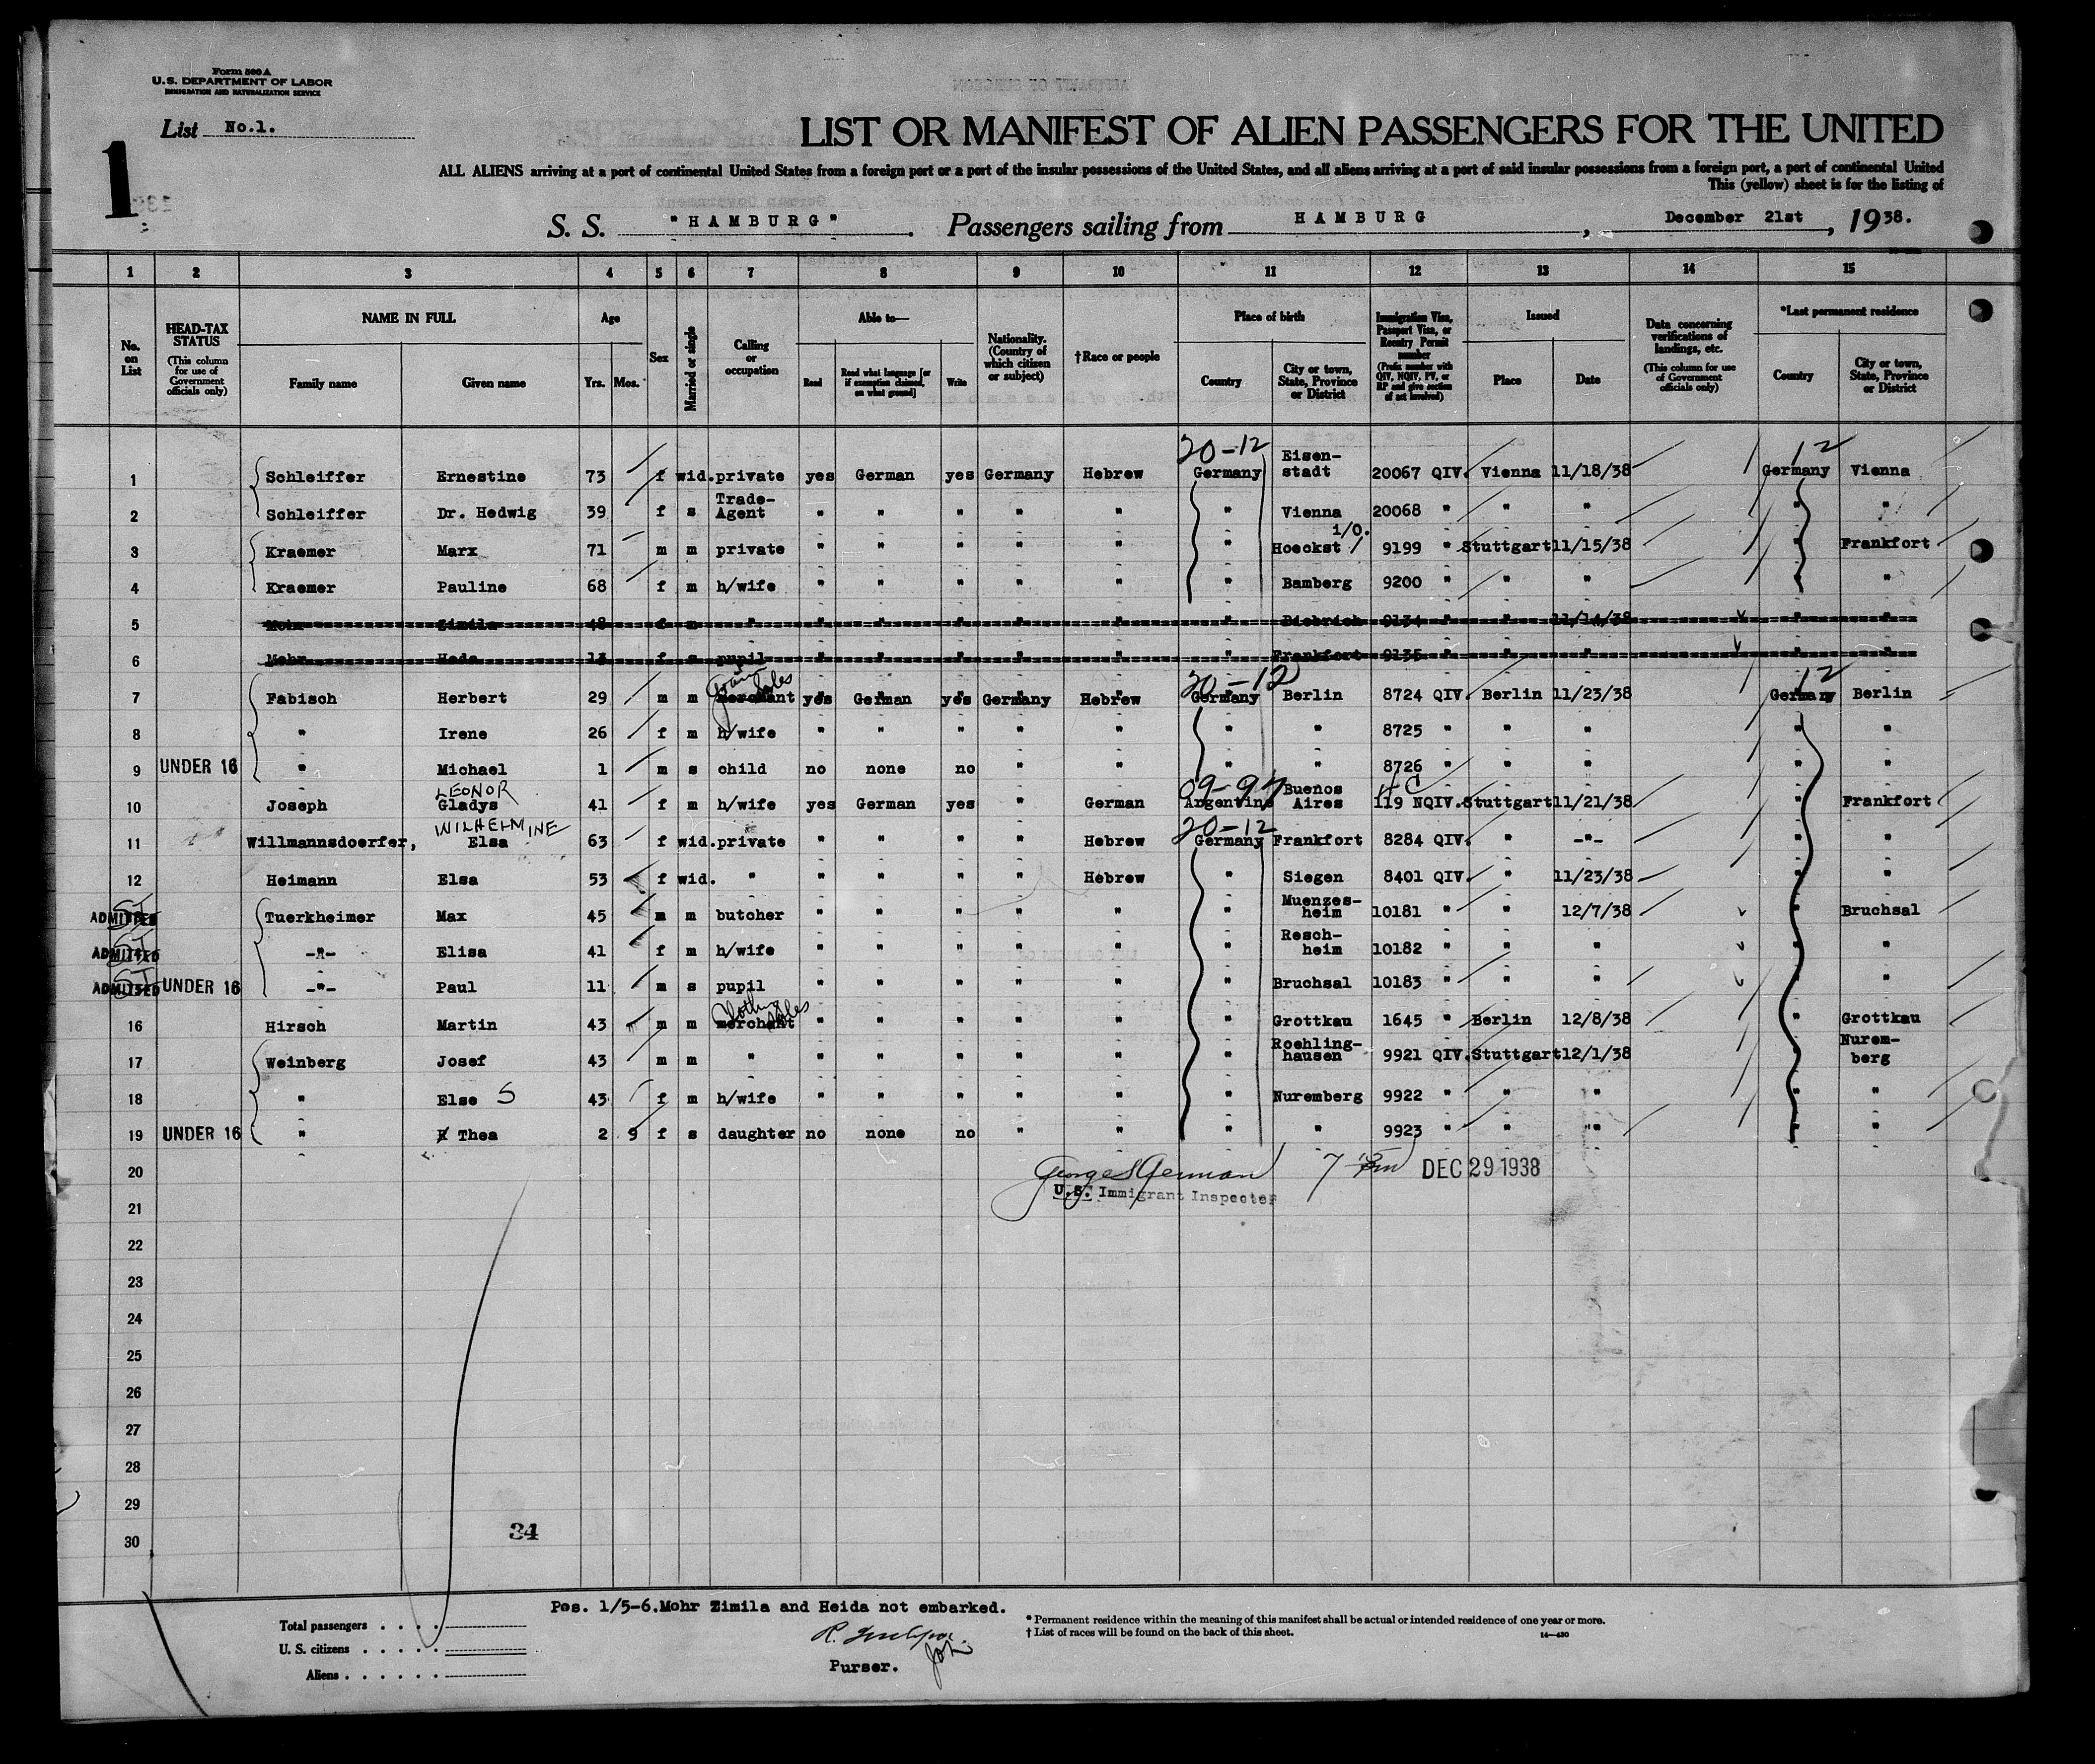 Form 500 A
U.S. DEPARTMENT OF LABOR
IMMIGRATION AND NATURALIZATION SERVICE
List No.1.
1
LIST OR MANIFEST OF ALIEN PASSENGERS FOR THE UNITED
ALL ALIENS arriving at a port of continental United States from a foreign port or a port of the insular possessions of the United States, and all aliens arriving at a port of said insular possessions from a foreign port, a port of continental United
This (yellow) sheet is for the listing of
S. S. "HAMBURG". Passengers sailing from HAMBURG, December 21st, 1938.
1 2 3 4 5 6 7 8 9 10 11 12 13 14 15
No. on List
HEAD-TAX STATUS (This column for use of Government officials only)
NAME IN FULL Family name Given name
Age Yrs. Mos.
Sex
Married or single
Calling or occupation
Able to— Read Read what language [or if exemption claimed, on what ground] Write
Nationality. (Country of which citizen or subject)
†Race or people
Place of birth Country City or town, State, Province or District
Immigration Visa, Passport Visa, or Reentry Permit number (Prefix number with QIV, NQIV, PV, or RP and give section of act involved)
Issued Place Date
Data concerning verifications of landings, etc. (This column for use of Government officials only)
*Last permanent residence Country City or town, State, Province or District
20-12 12
1 Schleiffer Ernestine 73 f wid. private yes German yes Germany Hebrew Germany Eisen-stadt 20067 QIV. Vienna 11/18/38 Germany Vienna
2 Schleiffer Dr. Hedwig 39 f s Trade-Agent " " " " " " Vienna 20068 " " " " "
3 Kraemer Marx 71 m m private " " " " " " Hoeckst 1/O. 9199 " Stuttgart 11/15/38 " Frankfort
4 Kraemer Pauline 68 f m h/wife " " " " " " Bamberg 9200 " " " " "
5 Mohr Zimila 48 f m " " " " " " " Biebrich 9134 " " 11/14/38 " "
6 Mohr Heda 13 f s pupil " " " " " " Frankfort 9135 " " " " "
20-12 12
7 Fabisch Herbert 29 m m merchant sales yes German yes Germany Hebrew Germany Berlin 8724 QIV. Berlin 11/23/38 Germany Berlin
8 " Irene 26 f m h/wife " " " " " " " 8725 " " " "
9 UNDER 16 " Michael 1 m s child no none no " " " " 8726 " " " "
LEONOR 09-97 4C
10 Joseph Gladys 41 f m h/wife yes German yes " German Argentine Buenos Aires 119 NQIV. Stuttgart 11/21/38 " Frankfort
WILHELMINE 20-12
11 Willmannsdoerfer, Elsa 63 f wid. private " " " " Hebrew Germany Frankfort 8284 QIV. " -"- " "
12 Heimann Elsa 53 f wid. " " " " " Hebrew " Siegen 8401 QIV. " 11/23/38 " "
ADMITTED SI Tuerkheimer Max 45 m m butcher " " " " " " Muenzes-heim 10181 " " 12/7/38 " Bruchsal
ADMITTED SI -"- Elisa 41 f m h/wife " " " " " " Resch-heim 10182 " " " " "
ADMITTED SI UNDER 16 -"- Paul 11 m s pupil " " " " " " Bruchsal 10183 " " " " "
16 Hirsch Martin 43 m m merchant Clothing sales " " " " " " Grottkau 1645 " Berlin 12/8/38 " Grottkau
17 Weinberg Josef 43 m m " " " " " " " Roehling-hausen 9921 QIV. Stuttgart 12/1/38 " Nurem-berg
18 " Else S 43 f m h/wife " " " " " " Nuremberg 9922 " " " " "
19 UNDER 16 " Thea 2 9 f s daughter no none no " " " " 9923 " " " " "
20 George S German DEC 29 1938
U.S. Immigrant Inspector
21
22
23
24
25
26
27
28
29
30
34
Pos. 1/5-6.Mohr Zimila and Heida not embarked.
Total passengers
U. S. citizens
Aliens
Purser.
* Permanent residence within the meaning of this manifest shall be actual or intended residence of one year or more.
† List of races will be found on the back of this sheet.
14—430